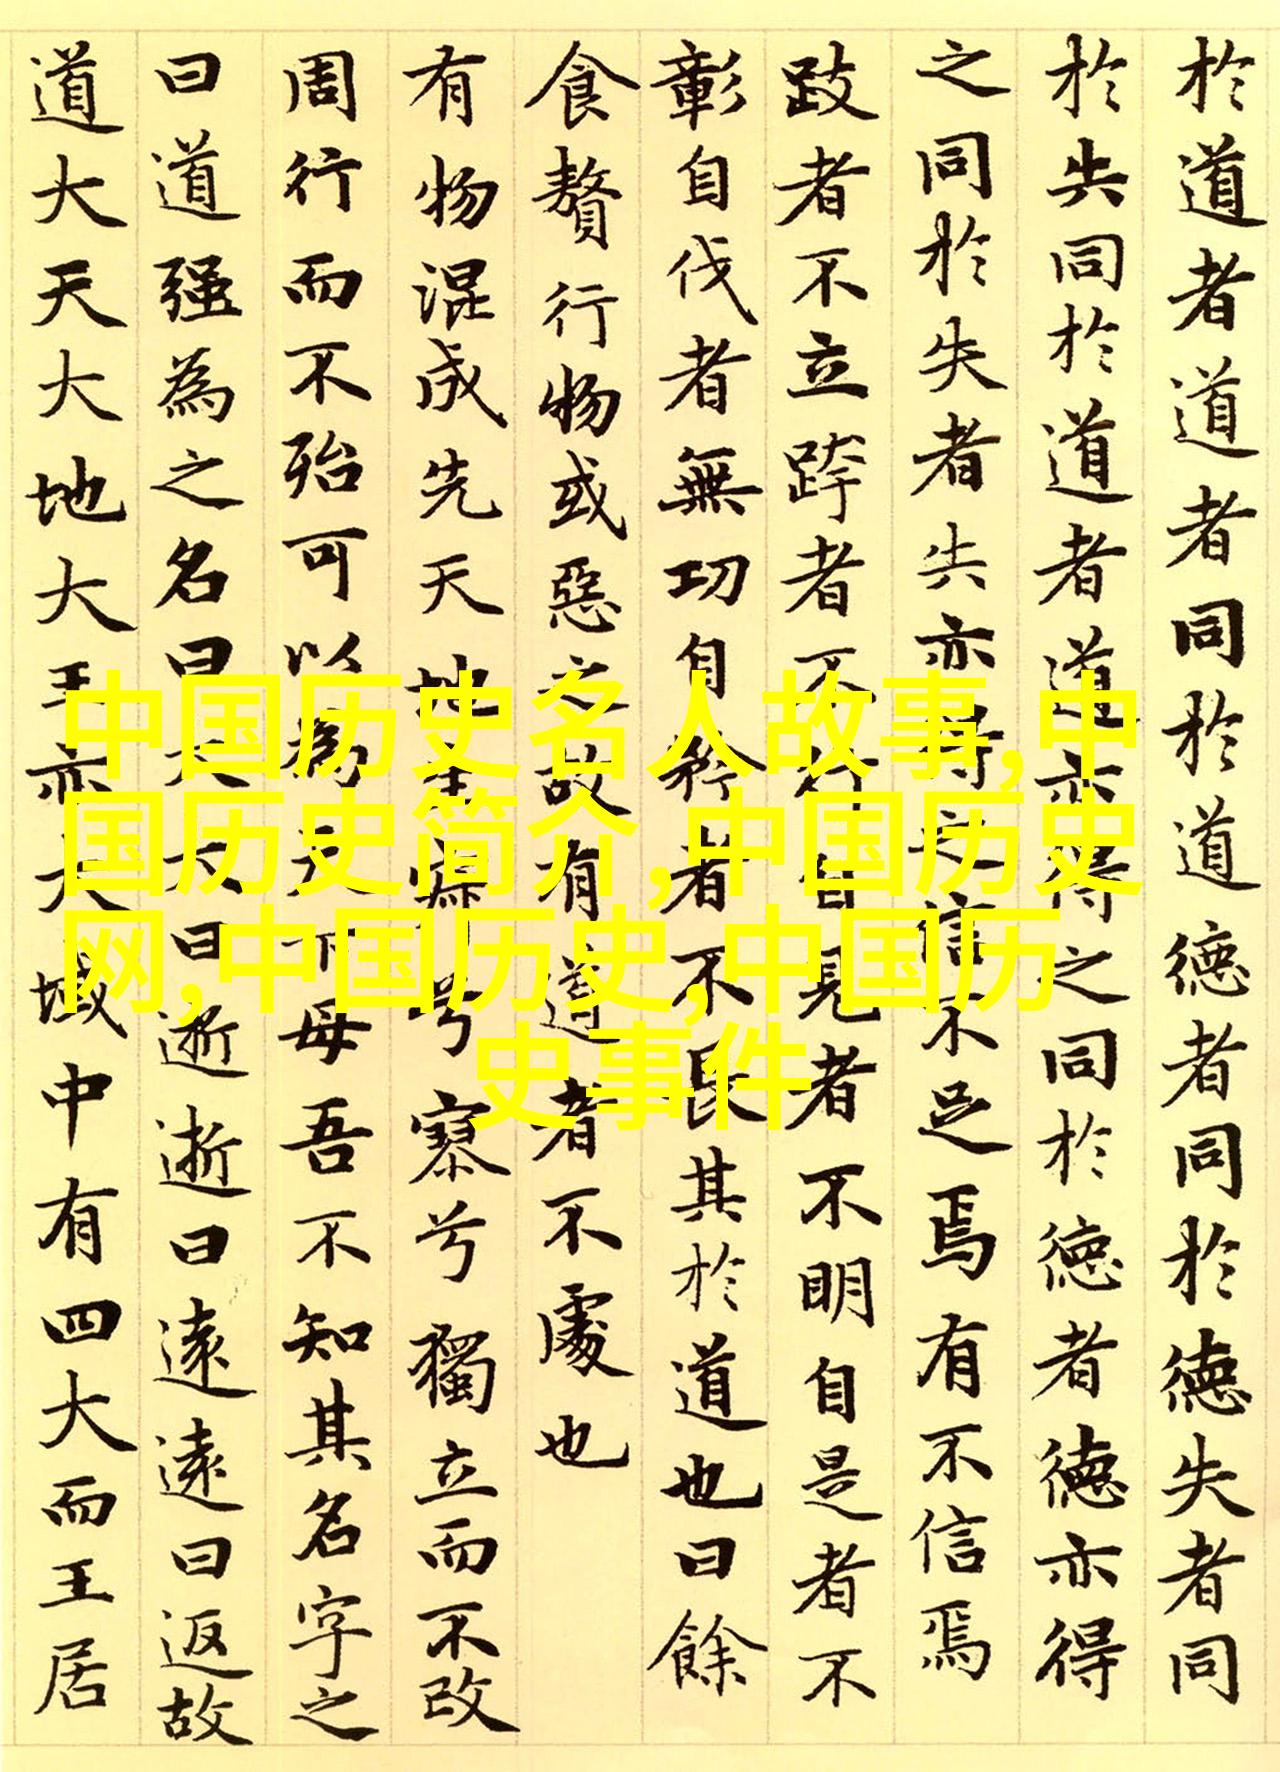 於道者道者同於道德者同於德失者同
於失同於道者道亦得之同於德者德亦得
之同於失者失亦得之信不足焉有不信焉
跂者不立跨者不行自見者不明自是者不
彰自伐者無功自矜者不長其於道也曰餘
食贅行物或惡之故有道者不處也
有物混成先天地生寂兮寥兮獨立而不改
周行而不殆可以為天下母吾不知其名字之
曰道强為之名曰大大曰逝逝曰遠遠曰返故
道大天大地大王亦大域中有四大而王居
中国历史名人故事,中
国历史简介,中国历史
网,中国历史,中国历
史事件